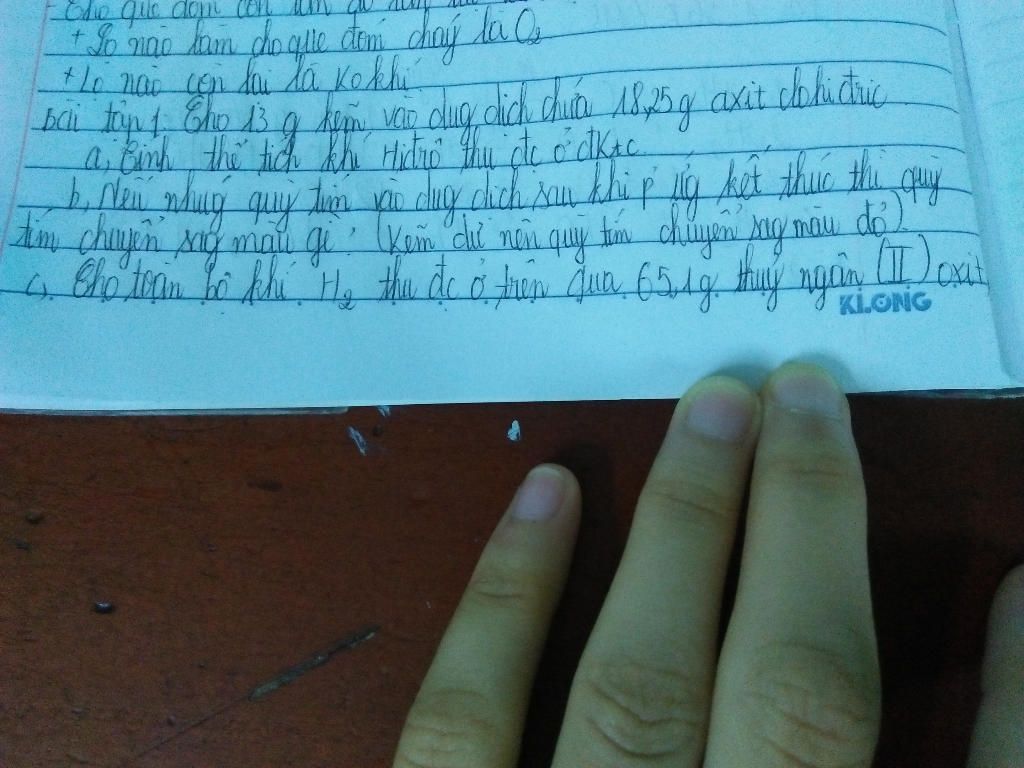 + Lọ nào làm cho que đóm cháy là O2
+ Lọ nào còn lại là ko khí
Bài tập 1. Cho 13 g kẽm vào dug dịch chứa 18,25g axit clohiđric
a, Tính thể tích khí Hiđrô thu đc ở đktc
b, Nếu nhúg quỳ tím vào dug dịch sau khi p' ứg kết thúc thì quỳ
tím chuyển sag màu gì? (Kẽm dư nên quỳ tím chuyển sag màu đỏ)
c, Cho toàn bộ khí H2 thu đc ở trên qua 65,1g thuỷ ngân (II) oxit
KLONG